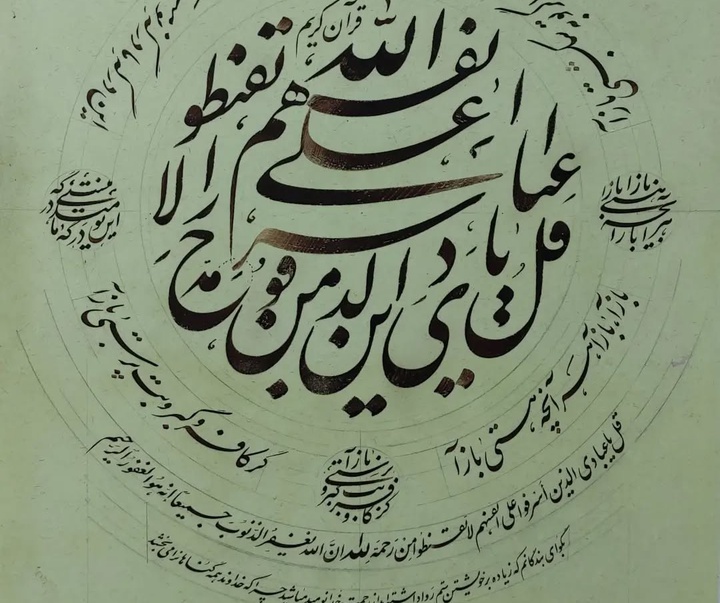 قرآن کریم
قل یا عبادی الذین اسرفوا علی انفسهم لا تقنطوا من رحمة الله
بازآ بازآ هر آنچه هستی بازآ
گر کافر و گبر و بت پرستی بازآ
این درگه ما درگه نومیدی نیست
بازآ بازآ هر آنچه هستی بازآ
گر کافر و گبر و بت پرستی بازآ
این درگه ما درگه نومیدی نیست
قل یا عبادی الذین اسرفوا علی انفسهم لا تقنطوا من رحمة الله ان الله یغفر الذنوب جمیعا انه هو الغفور الرحیم
بگو ای بندگانم که زیاده بر خویشتن ستم روا داشته‌اید از رحمت خدا نومید مباشید چرا که خداوند همه گناهان را می‌بخشد